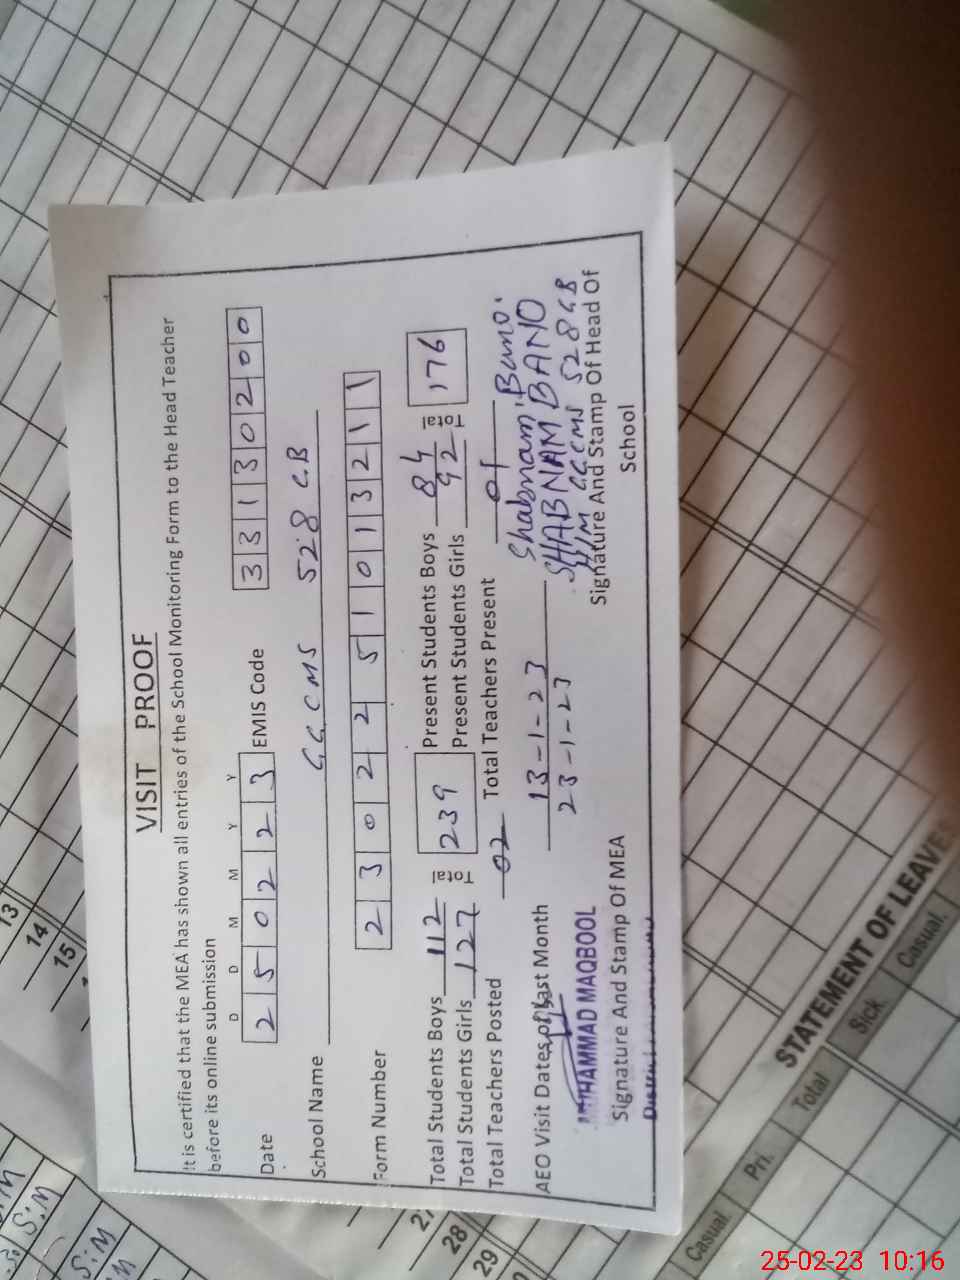 VISIT PROOF
It is certified that the MEA has shown all entries of the School Monitoring Form to the Head Teacher
before its online submission
D D M M Y Y
Date 2 5 0 2 2 3 EMIS Code 3 3 1 3 0 2 0 0
School Name G.G.C M S 528 G.B
Form Number 2 3 0 2 2 5 1 0 1 3 2 1 1
Total Students Boys 112 Total 239 Present Students Boys 84 Total 176
Total Students Girls 127 Present Students Girls 92
Total Teachers Posted 02 Total Teachers Present 01
AEO Visit Dates of Last Month 13-1-23
23-1-23
Shabnam Bano.
SHABNAM BANO
H/M GGCMS 528 GB
MUHAMMAD MAQBOOL
Signature And Stamp Of MEA
Signature And Stamp Of Head Of
School
13
14
15
27
28
29
S:M
S:M
STATEMENT OF LEAVE
Casual. Pri. Total Sick Casual.
25-02-23 10:16